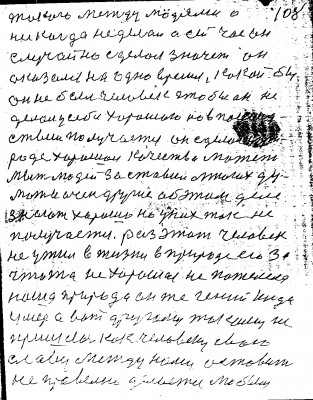 такого между людями а 108
никогда не делал а сичас он
случайно сделал значет он
оказался на одно время, какой бы
он не был человек чтобы он не
делал себя хорошого а в
ствии получается он сделал
роде хорошая качества может
быть людей заставил о многих ду-
мать а они другие об этом деле
знают хорошо но у них так не
получается. раз этот человек
не ужил в жизни в природе его за
что то не хорошая не
наша природа он же гений когда
умер а вот другому такому не
пришлось как человеку свою
славу между нами оставить
не правельно делается